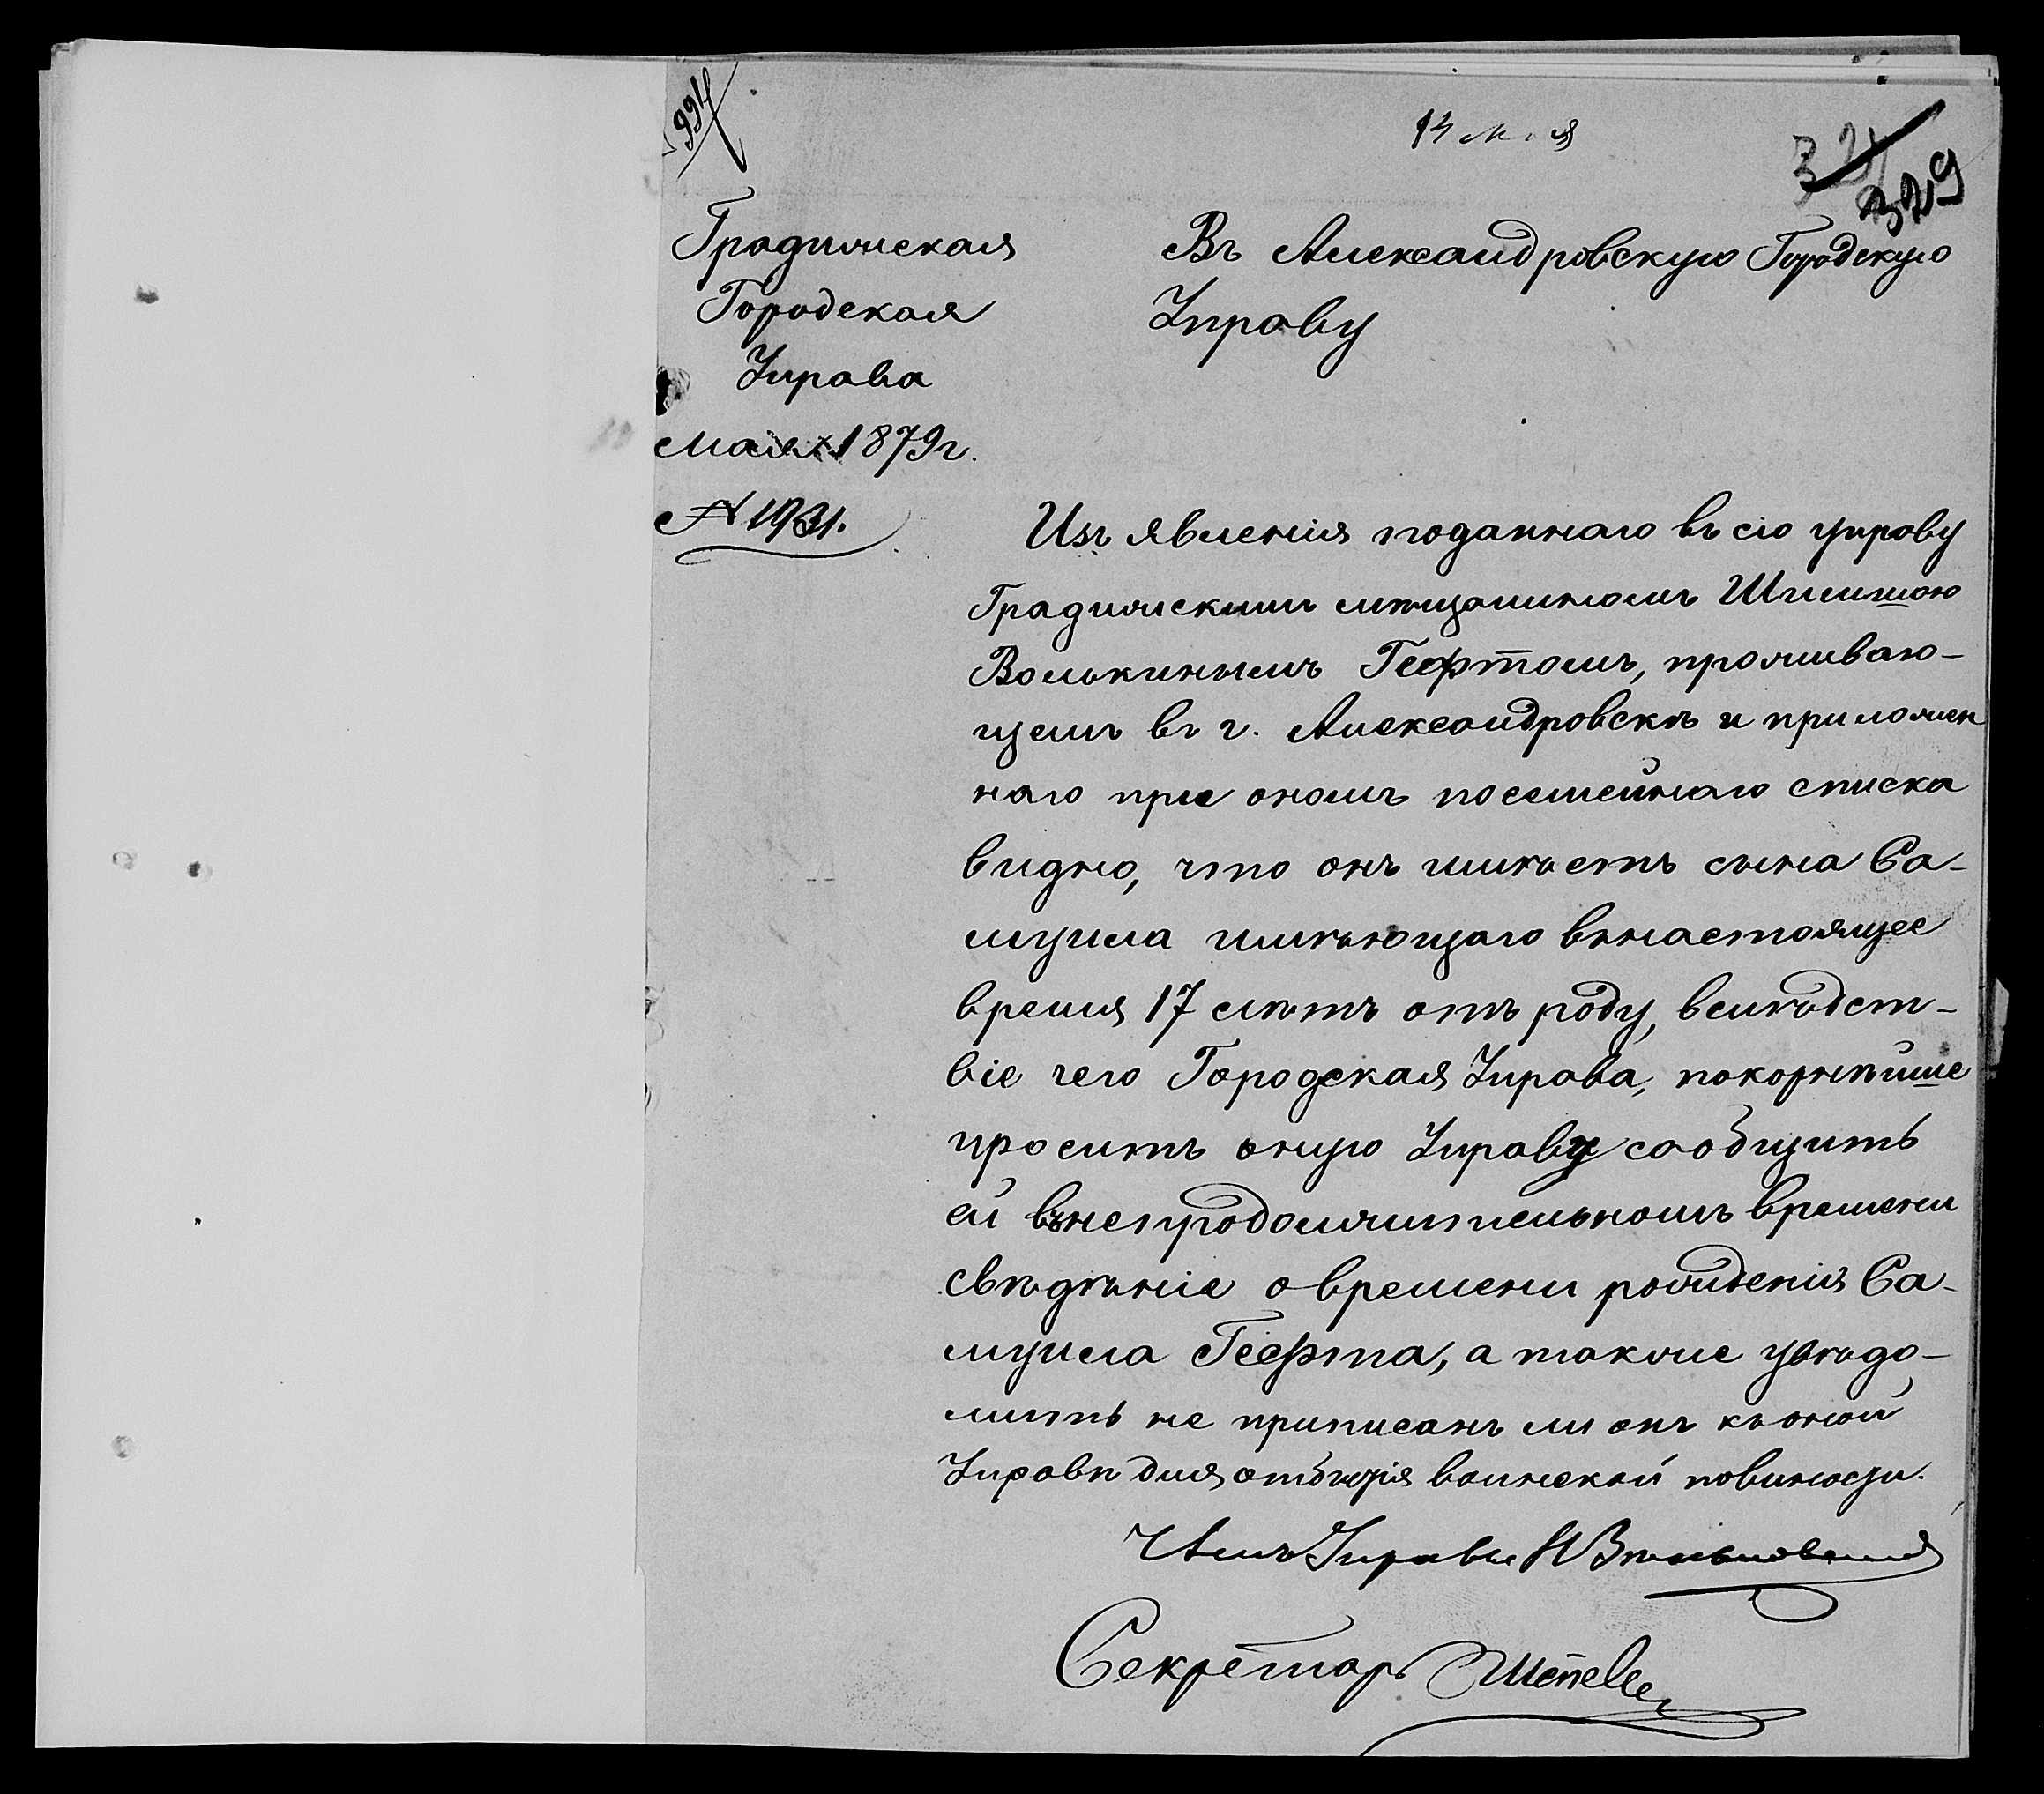 994
14 мая
321
329
Градижская
Городская
Управа
Мая 1879 г.
№ 1931.
Въ Александровскую Городскую
Управу
Изъ явленія поданнаго въ сію управу
Градижскимъ мѣщаниномъ Шлиомою
Волькинымъ Гефтомъ, проживаю-
щемъ въ г. Александровскѣ и приложен
наго при ономъ посемейнаго списка
видно, что онъ имѣетъ сына Са-
муила имѣющаго внастоящее
время 17 лѣтъ отъ роду, вслѣдст-
віе чего Городская Управа, покорнѣйше
проситъ оную Управу сообщить
ей внепродолжительномъ времени
свѣдѣніе о времени рожденія Са-
муила Гефта, а также увѣдо-
мить не приписанъ ли онъ къ оной
Управѣ для отбытія воинской повиности.
Членъ Управы
Секретарь